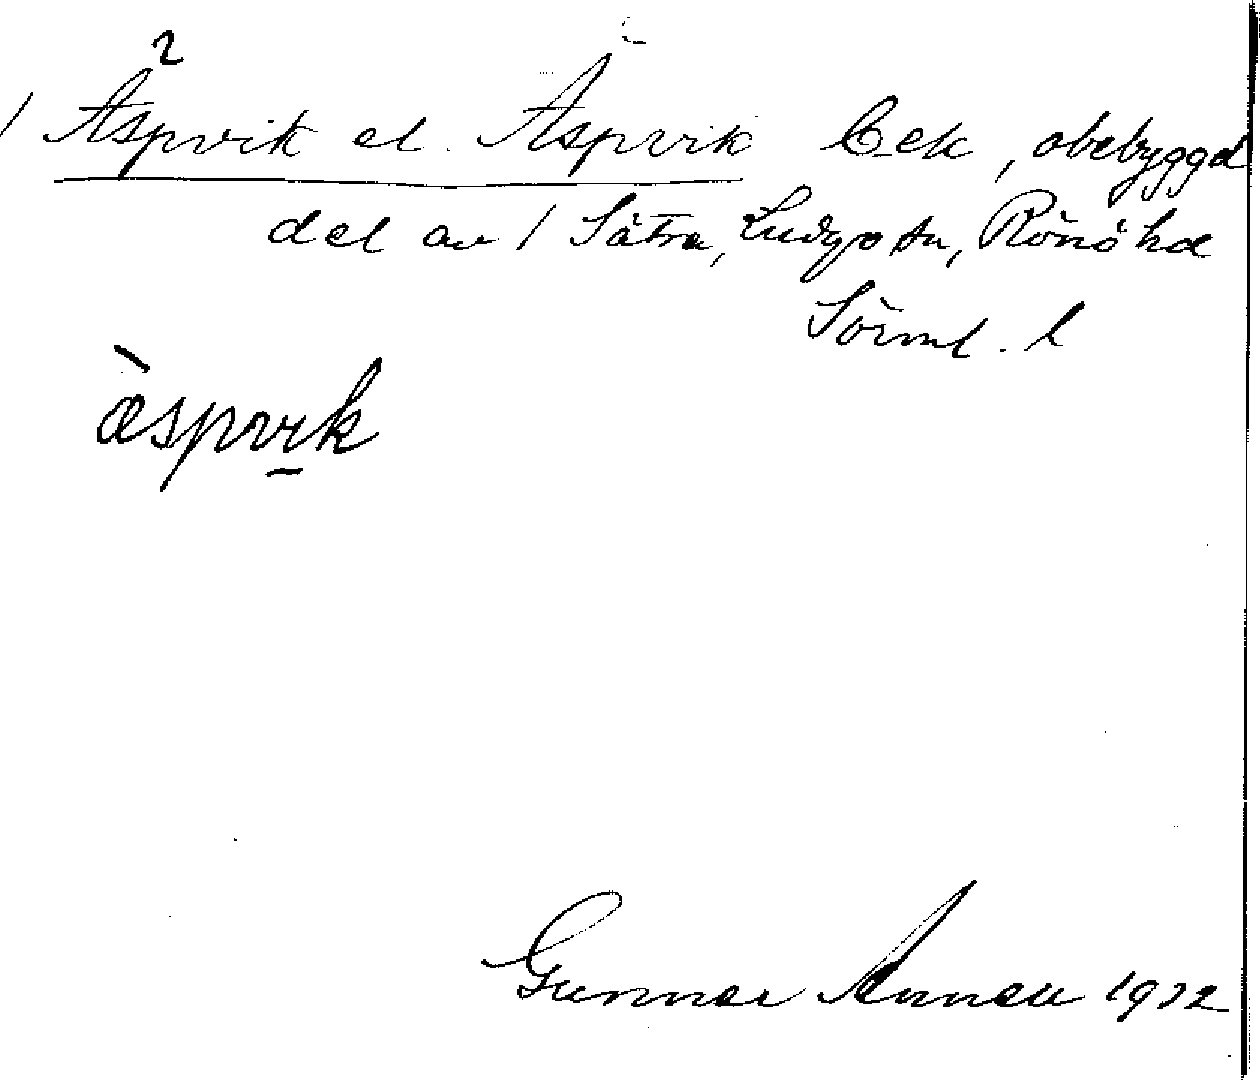 2
/ Äspvik el. Äspvik Eek, obebyggd
del av / Sätra, Ludgo sn, Rönö hd
Sörml. l
æ̀spvik
Gunnar 1932